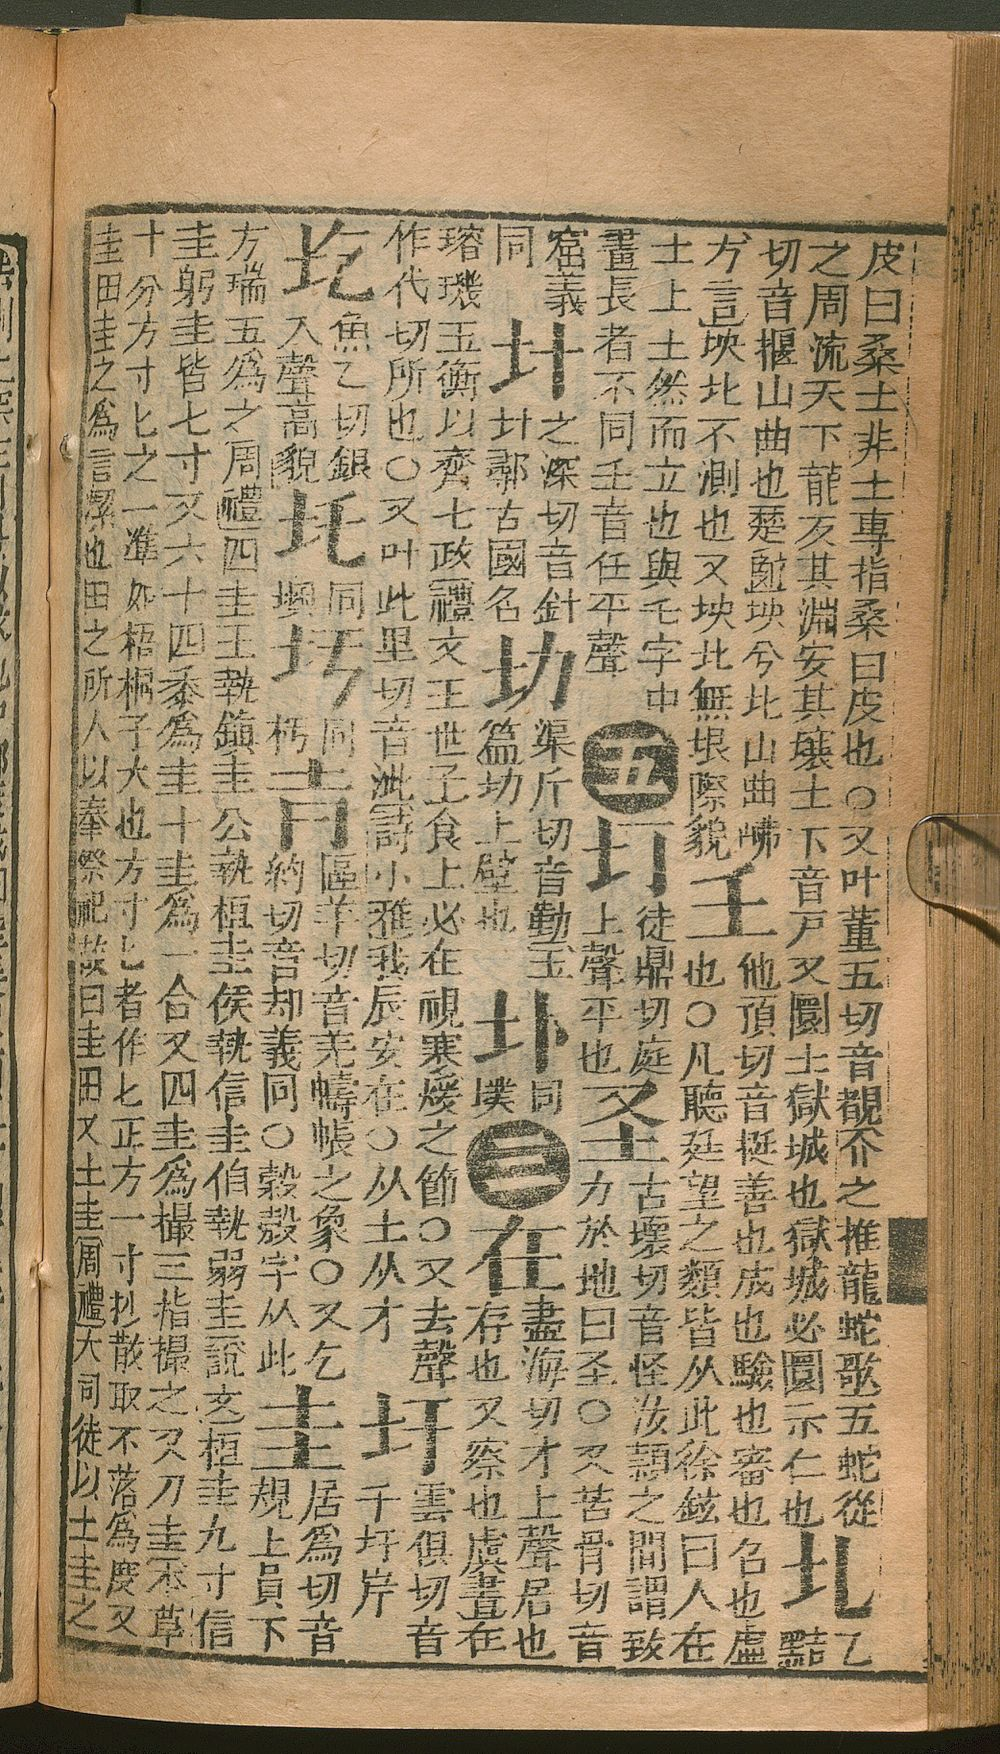 皮曰桑土非土專指桑曰皮也○又叶董五切音覩介之推龍蛇歌五蛇從
之周流天下龍亥其淵安其壤土下音戸又圜土獄城也獄城必圜示仁也
圠
乙
黠
切音握山曲也楚坱兮圠山曲岪
方言坱圠不測也又坱圠無垠際貌
𡈼
他頂切音挺善也成也驗也審也名也虛
也○凡聽廷望之類皆从此徐鉉曰人在
土上土然而立也與壬字中
畫長者不同壬音任平聲
五
圢
徒鼎切庭
上聲平也
圣
古壞切音怪汝潁之間謂致
力於地曰圣○又苦骨切音
窟義
同
之深切音針
鄩古國名
㘦
渠斤切音勤玉
篇㘦上壁也
圤
同
墣
三
在
盡海切才上聲居也
存也又察也虞書在
璿璣玉衡以齊七政禮文王世子食上必在視寒煖之節○又去聲
作代切所也○又叶此里切音泚詩小雅我辰安在○从土从才
圩
雲俱切音
千圩岸
圪
魚乙切銀
入聲高貌
圫
同
圬
同
杇
区羊切音羌幬帳之象○又乞
約切音却義同○穀殼字从此
圭
居爲切音
規上員下
方瑞五爲之周禮四圭王執鎮圭公執桓圭侯執信圭伯執弱圭說文桓圭九寸信
圭躬圭皆七寸又六十四黍爲圭十圭爲一合又四圭爲撮三指撮之又刀圭本草
十分方寸匕之一準如梧桐子大也方寸匕者作匕正方一寸抄散取不落爲度又
圭田圭之爲言潔也田之所人以奉祭祀故曰圭田又土圭周禮大司徒以土圭之